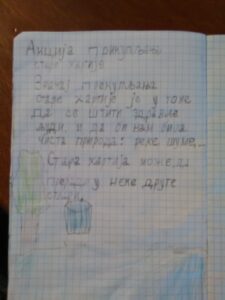 Акција прикупљања
старе хартије
Значај прикупљања
старе хартије је у томе
да се штити здравље
људи, и да би нам била
чиста природа: реке шуме,
Стара хартија може да
у неке друге